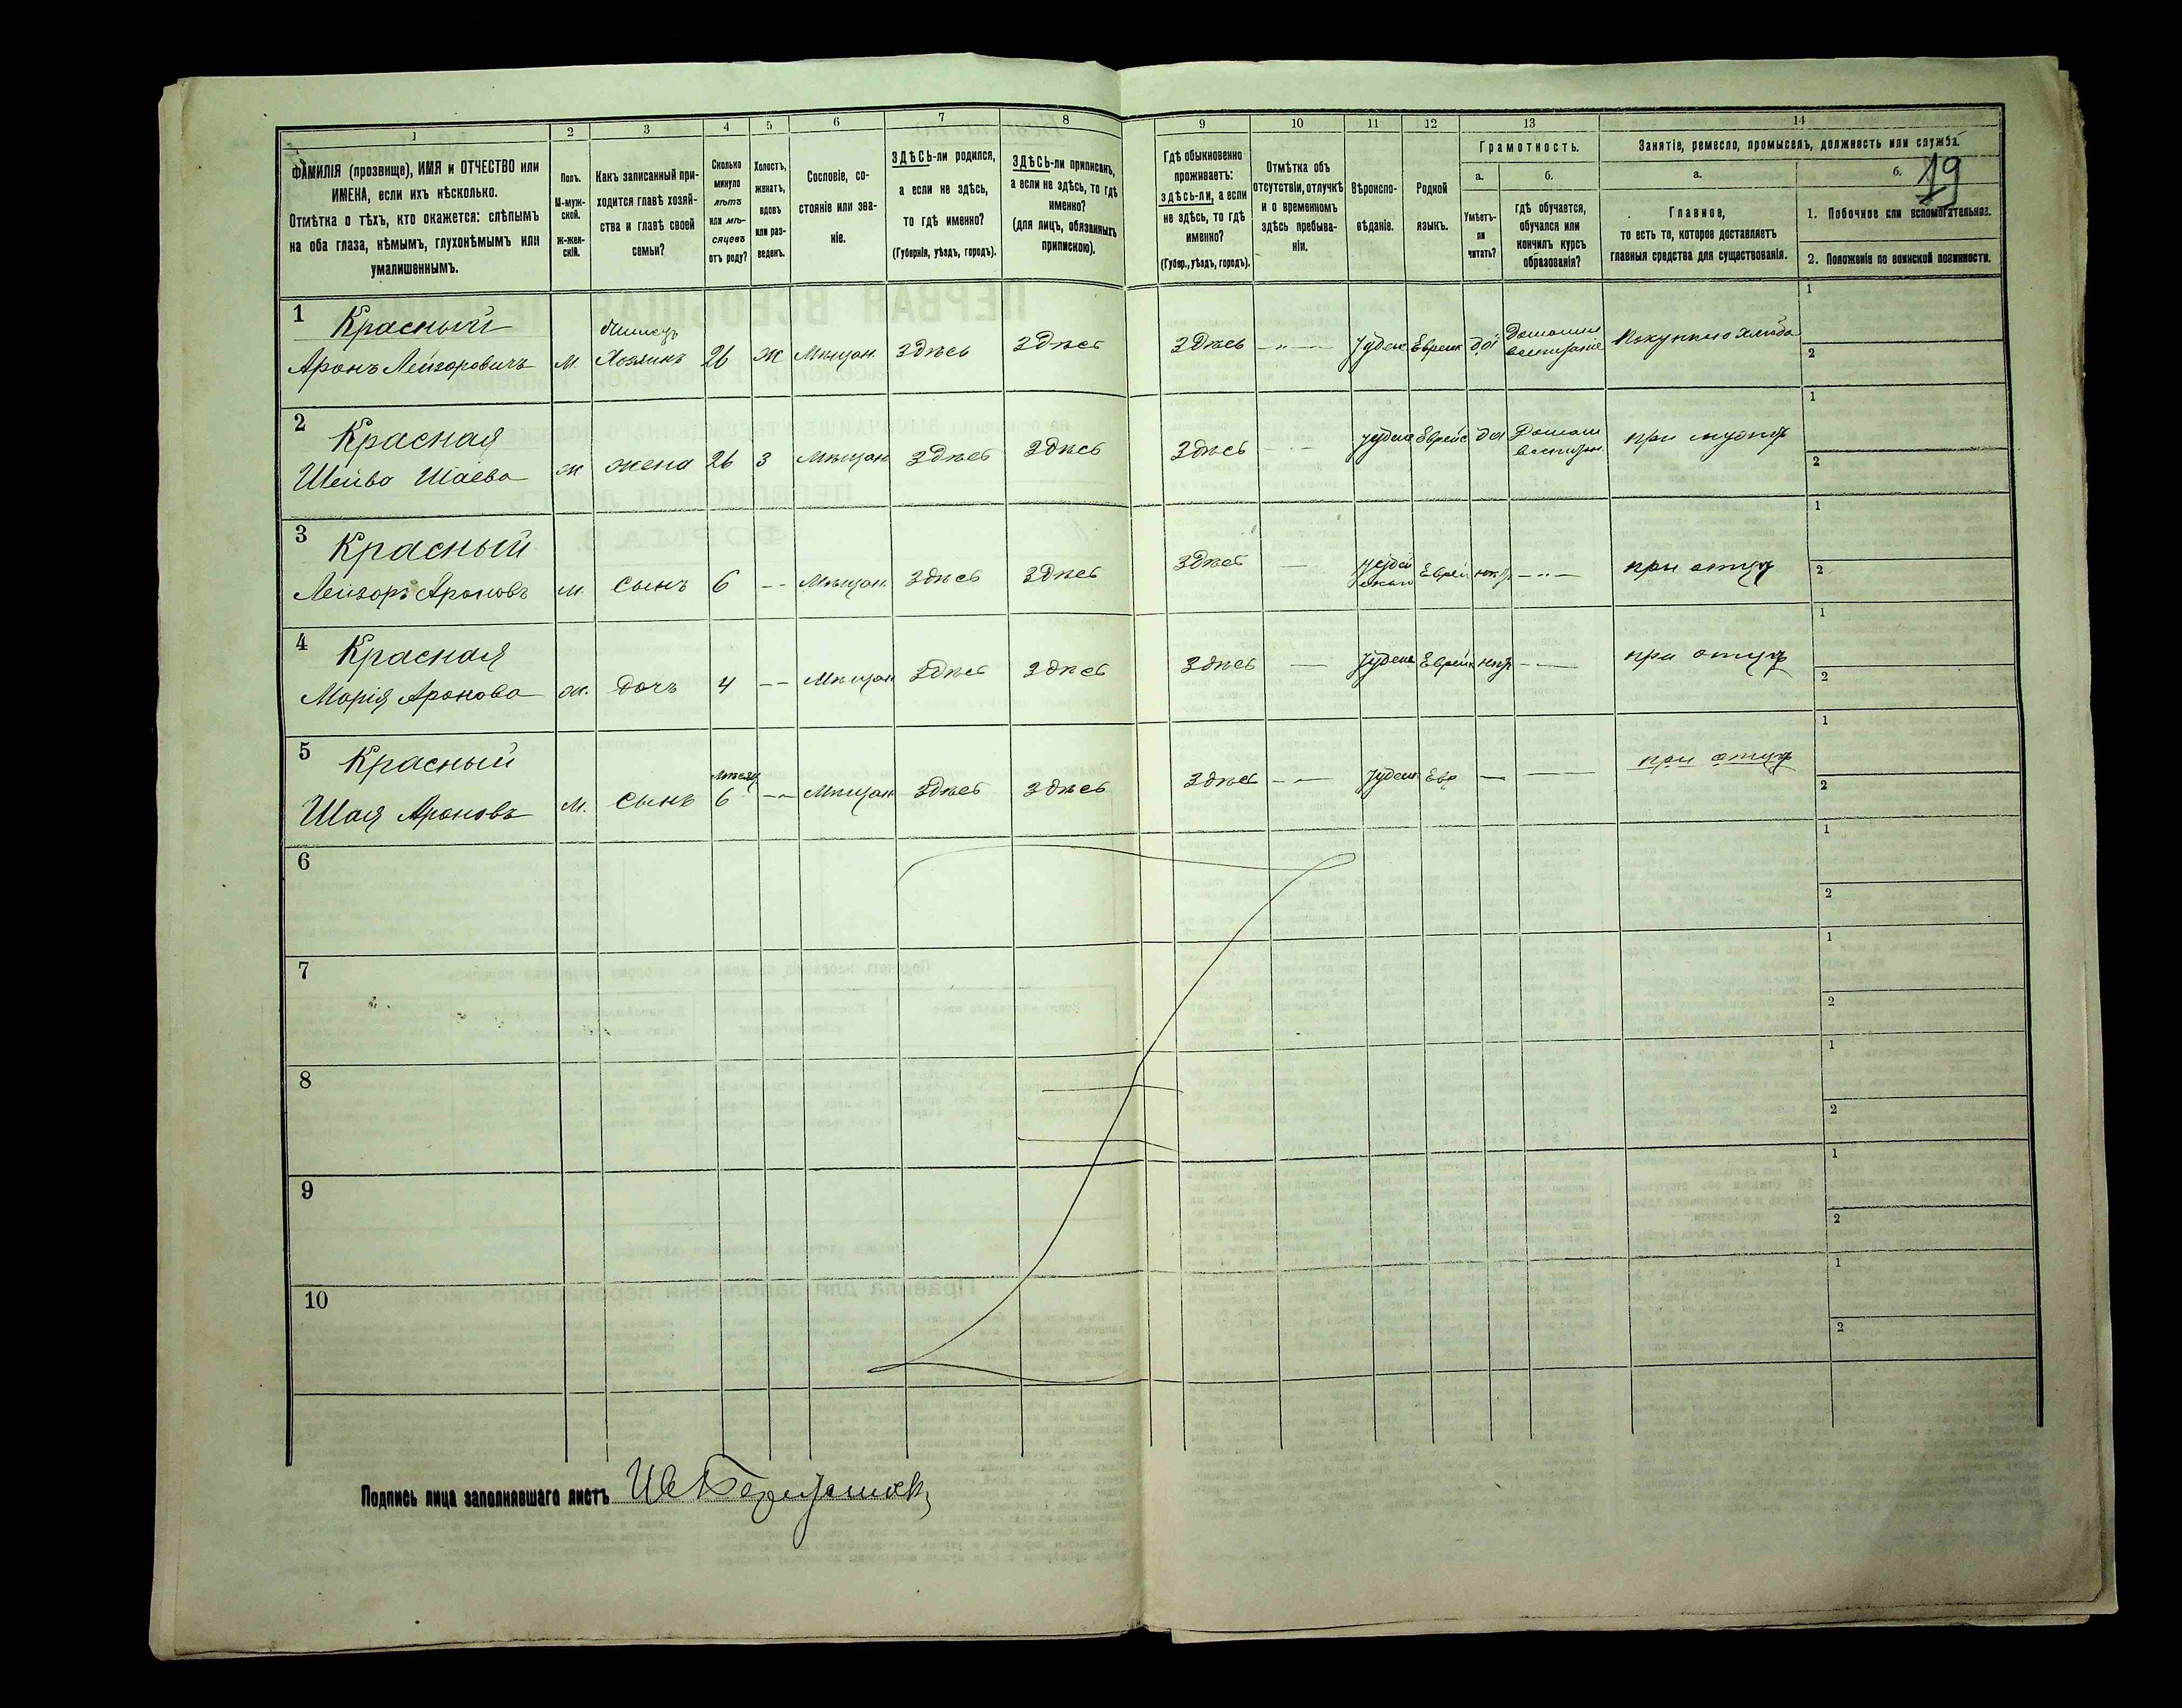 1
2
3
4
5
6
7
8
9
10
11
12
13
14
ФАМИЛІЯ (прозвище), ИМЯ и ОТЧЕСТВО или
ИМЕНА, если ихъ нѣсколько.
Отмѣтка о тѣхъ, кто окажется: слѣпымъ
на оба глаза, нѣмымъ, глухонѣмымъ или
умалишеннымъ.
Полъ.
М-муж-
ской.
ж-жен-
скій.
Какъ записанный при-
ходится главѣ хозяй-
ства и главѣ своей
семьи?
Сколько
минуло
лѣтъ
или мѣ-
сяцевъ
отъ роду?
Холостъ,
женатъ,
вдовъ
или раз-
веденъ.
Сословіе, со-
стояніе или зва-
ніе.
ЗДѢСЬ-ли родился,
а если не здѣсь,
то гдѣ именно?
(Губернія, уѣздъ, городъ).
ЗДѢСЬ-ли приписанъ,
а если не здѣсь, то гдѣ
именно?
(для лицъ, обязанныхъ
припискою).
Гдѣ обыкновенно
проживаетъ:
здѣсь-ли, а если
не здѣсь, то гдѣ
именно?
(Губер., уѣздъ, городъ).
Отмѣтка объ
отсутствіи, отлучкѣ
и о временномъ
здѣсь пребыва-
ніи.
Вѣроиспо-
вѣданіе.
Родной
языкъ.
Грамотность.
а.
Умѣетъ-
ли
читать?
б.
гдѣ обучается,
обучался или
кончилъ курсъ
образованія?
Занятіе, ремесло, промыселъ, должность или служба.
а.
Главное,
то есть то, которое доставляетъ
главныя средства для существованія.
б. 19
1. Побочное или вспомогательное.
2. Положеніе по воинской повинности.
1 Красный
Аронъ Лейзоровичъ м. Хозяинъ 26 ж Мѣщан. Здѣсь Здѣсь Здѣсь —"— Іудей Еврейск да Домашнее воспитаніе 1
2
2 Красная
Шейва Шаева ж жена 26 З Мѣщан Здѣсь Здѣсь Здѣсь — Іудей Еврейс да Домашн воспитан при мужѣ 1
2
3 Красный
Лейзоръ Ароновъ м. сынъ 6 -- Мѣщан. Здѣсь Здѣсь Здѣсь — Іудей ским Еврей нѣтъ —"— при отцѣ 1
2
4 Красная
Марія Аронова ж. дочь 4 -- Мѣщан Здѣсь Здѣсь Здѣсь — Іудей Еврей нѣтъ —— при отцѣ 1
2
5 Красный
Шая Ароновъ м. сынъ 6 мѣсяц -- Мѣщан Здѣсь Здѣсь Здѣсь —— Іудей Евр — —— при отцѣ 1
2
6 1
2
7 1
2
8 1
2
9 1
2
10 1
2
Подпись лица заполнявшаго листъ